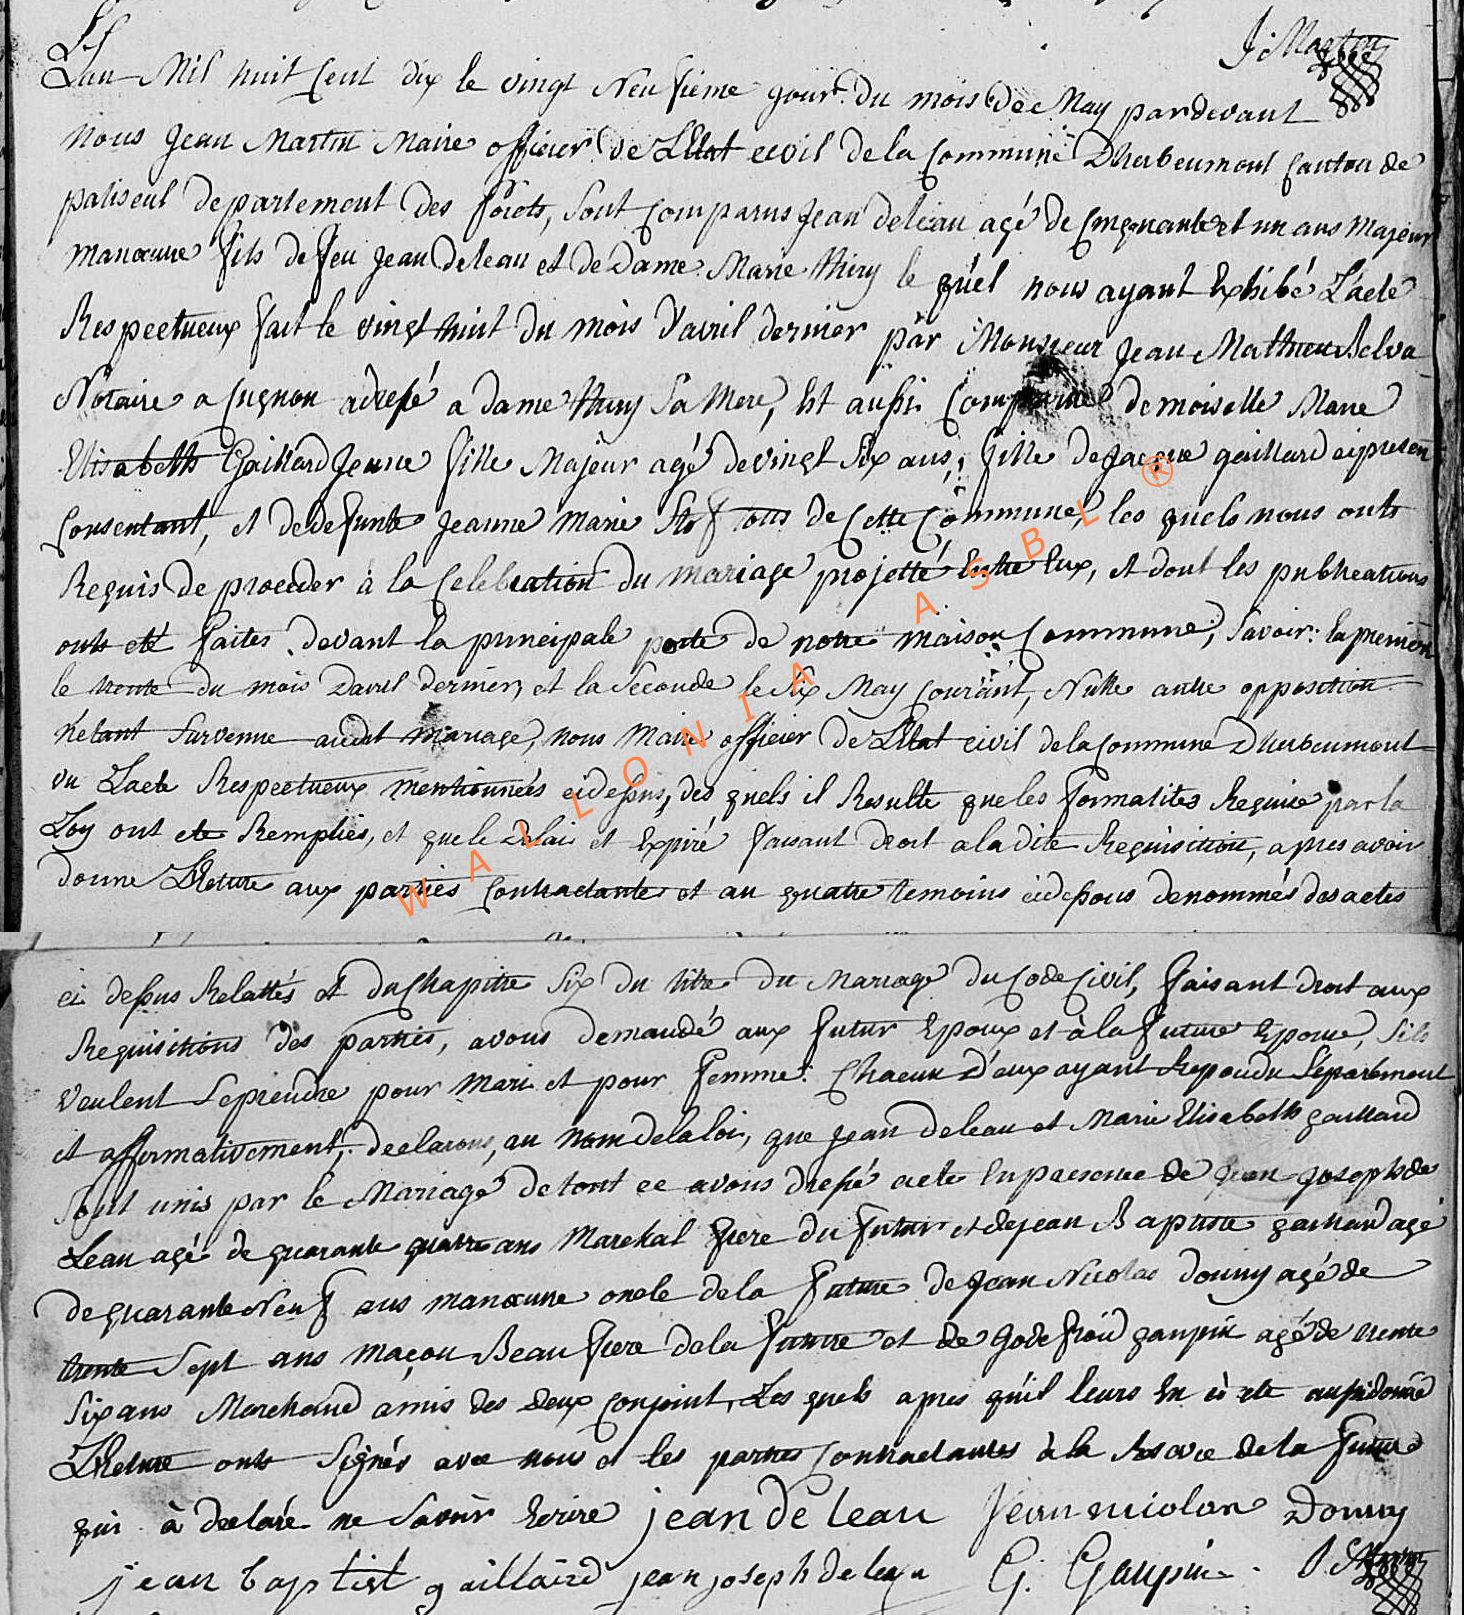 J: Martin
Lan Mil huit Cent dix le vingt Neufieme jour du mois de May pardevant
nous Jean Martin Maire officier de LEtat civil de la Commune Dherbeumont Canton de
paliseul departement des forets, sont comparus Jean deleau agé de Cinquante et un ans Majeur
manœuvre fils de feu Jean deleau et de Dame Marie thiry le quel nous ayant Exhibé L'acte
Respectueux fait le vingt huit du mois d'avril dernier par Monsieur Jean Mathieu Belva
Notaire a Cugnon adressé a dame thiry Sa Mere, Et aussi Comparue demoiselle Marie
Elisabeth Gaillard Jeune fille Majeur agé de vingt Six ans, fille de Jacque gaillard ci presen
Consentant, et de defunte Jeanne Marie tous de Cette Commune, les quels nous onts
Requis de proceder à la Celebration du mariage projetté Entre Eux, et dont les publications
onts eté faites devant la principale porte de notre maison Commune, Savoir: la premiere
le trente du mois Davril dernier, et la Seconde le Six May Courant, Nulle autre opposition
n'etant Survenue audit mariage, nous Maire officier de LEtat civil de la commune Dherbeumont
vu L'acte Respectueux mentionnées cidessus, des quels il Resulte que les formalites Requise par la
Loy ont ete Remplies, et que le Delai et Expiré faisant droit a la dite Requisition, apres avoir
donne LEcture aux parties Contractante et au quatre temoins cidessous denommés des actes
ci dessus Relattés et du Chapitre Six du titre du Mariage du Code Civil, faisant droit aux
Requisitions des parties, avons demandé aux futur Epoux et à la future Epouse, Sils
veulent Se prendre pour mari et pour femme: Chacun d'eux ayant Repondu Séparément
et affirmativement, declarons, au nom de la loi, que Jean deleau et Marie Elisabeth gaillard
Sont unis par le Mariage de tout ce avons dressé acte En presence de Jean Joseph de
Leau agé de quarante quatre ans Marechal frere du futur et de Jean Baptiste gaillard agé
de quarante Neuf ans manœuvre oncle de la future de Jean Nicolas donny agé de
trente Sept ans maçon Beau frere de la future et de Godefroid gaupin agé de trente
Six ans Marchand amis des deux Conjoint, Les quels apres qu'il leurs En à ete aussi donné
LEcture onts Signés avec nous et les parties Contractantes à la Reserve de la future
qui à declaré ne Savoir Ecrire jean de leau Jean nicolas Donny
jean baptist gaillaird jean joseph de leau G. Gaupin J Martin
WALLONIA ASBL ®